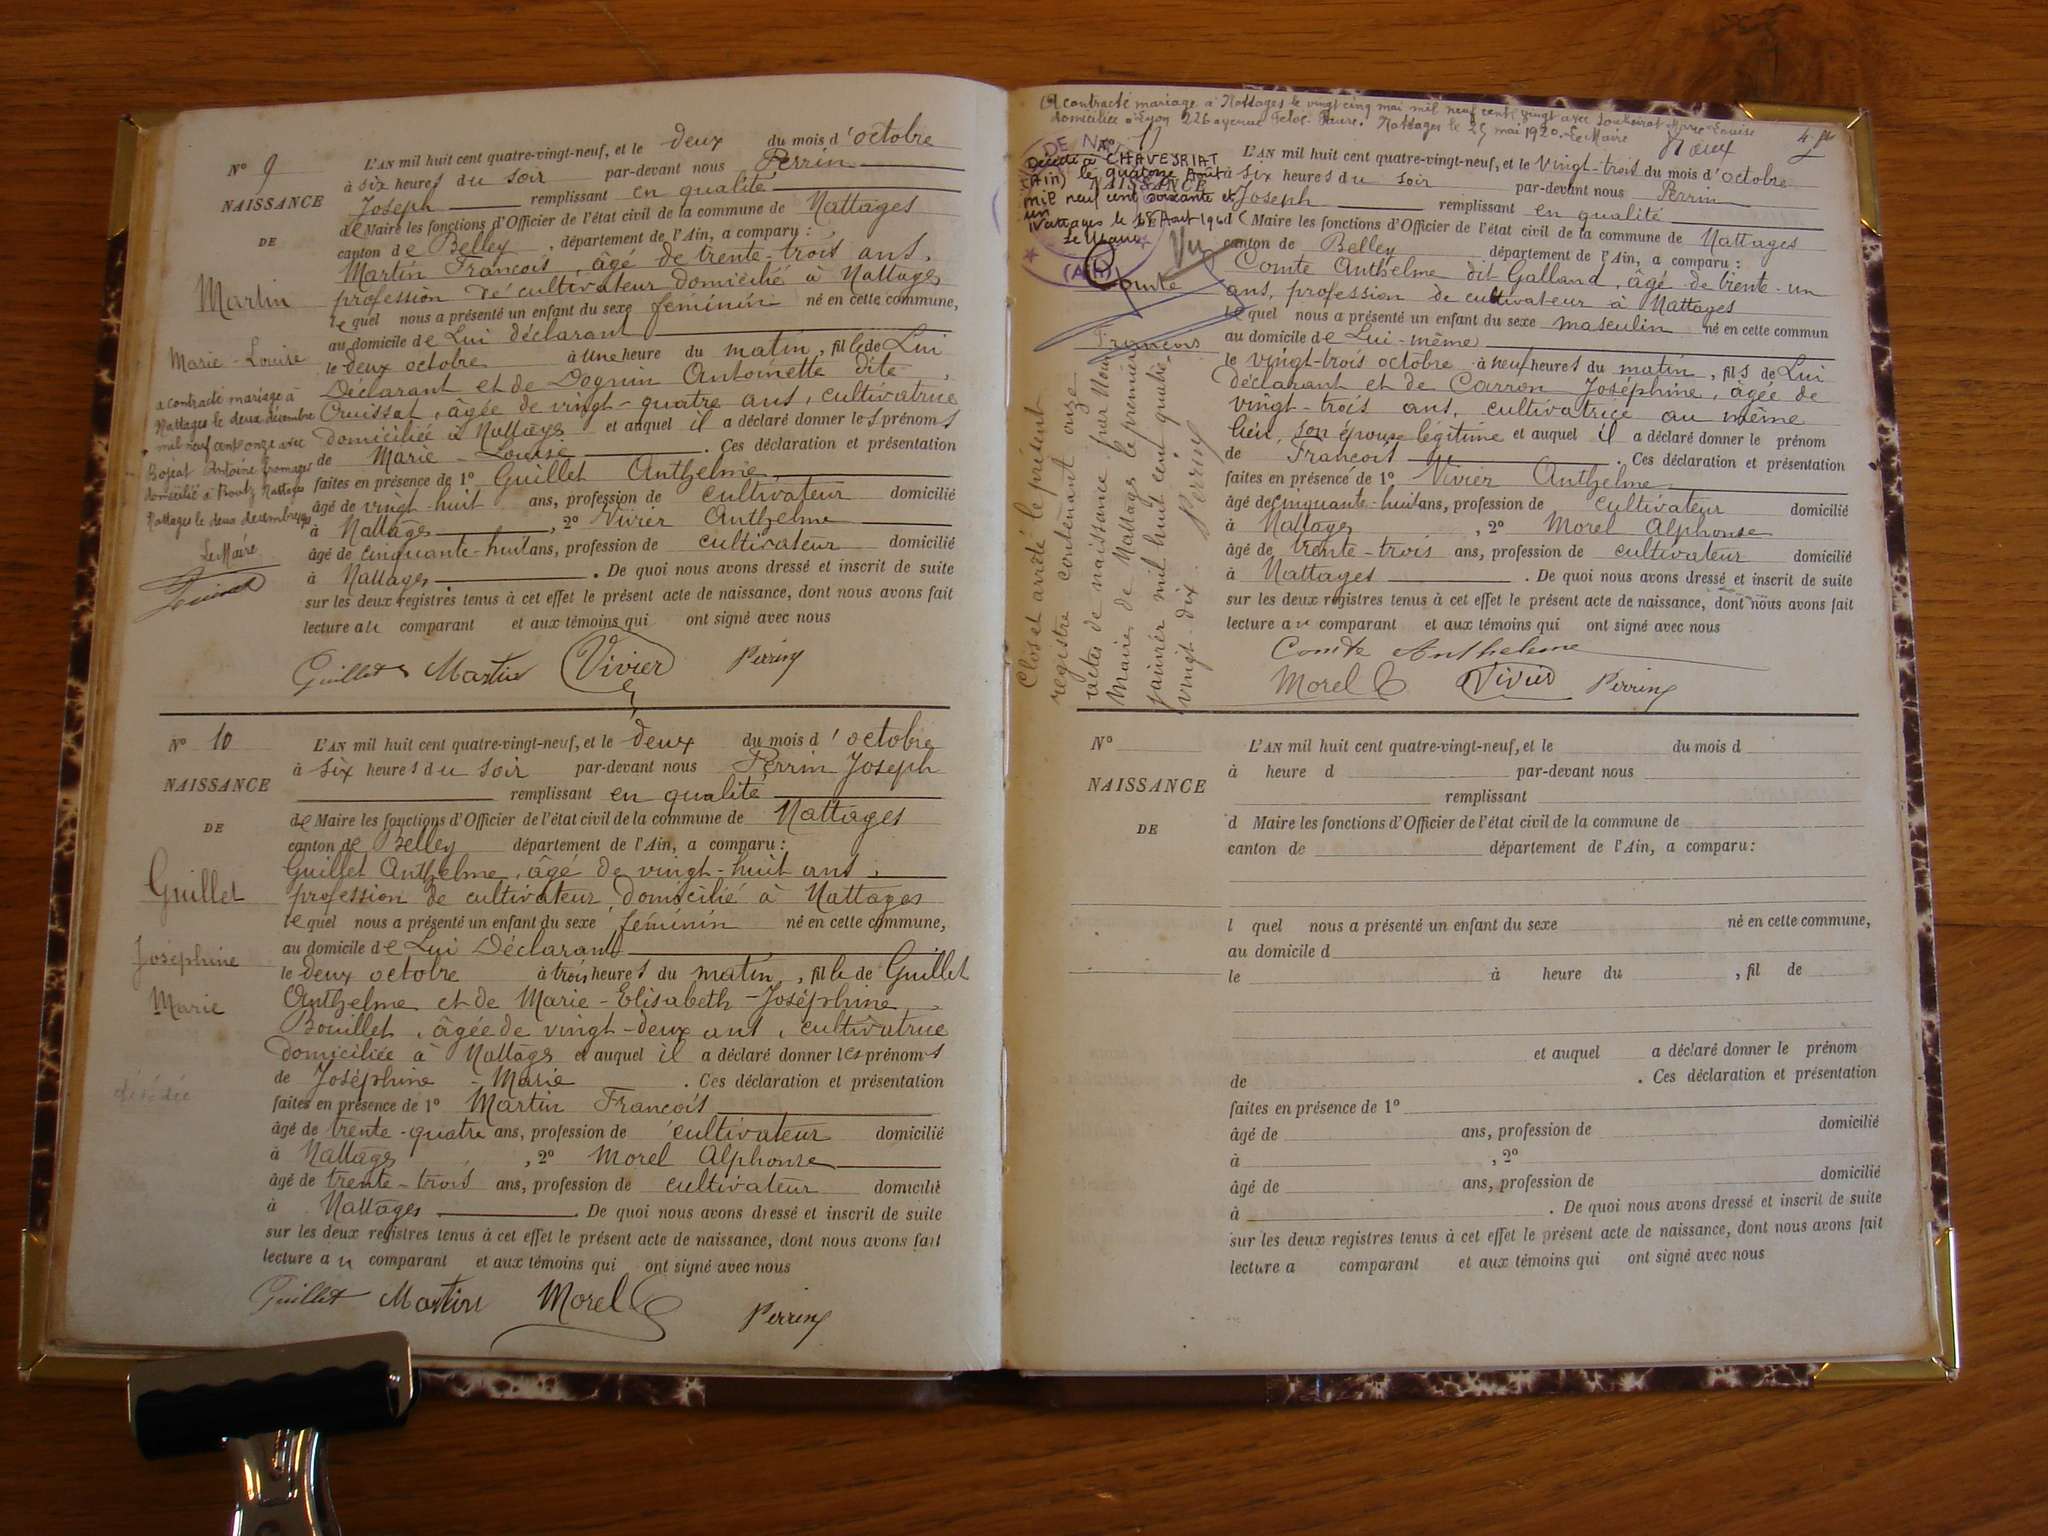 N° 9
NAISSANCE
DE
Martin
Marie-Louise
a contracté mariage à
Nattages le deux décembre
mil neuf cent onze avec
Antoine fromager
domicilié à Nattages
Nattages le deux décembre
Le Maire
L'AN mil huit cent quatre-vingt-neuf, et le deux du mois d'octobre
à six heures du soir par-devant nous Perrin
Joseph remplissant en qualité
de Maire les fonctions d'Officier de l'état civil de la commune de Nattages
canton de Belley, département de l'Ain, a comparu :
Martin François, âgé de trente-trois ans,
profession de cultivateur domicilié à Nattages
lequel nous a présenté un enfant du sexe féminin né en cette commune,
au domicile de Lui déclarant
le deux octobre à une heure du matin, fille de Lui
Déclarant et de Dognin Antoinette dite
Cruissat, âgée de vingt-quatre ans, cultivatrice
domiciliée à Nattages et auquel il a déclaré donner les prénoms
de Marie-Louise. Ces déclaration et présentation
faites en présence de 1° Guillet Anthelme
âgé de vingt-huit ans, profession de cultivateur domicilié
à Nattages, 2° Vivier Anthelme
âgé de cinquante-huit ans, profession de cultivateur domicilié
à Nattages. De quoi nous avons dressé et inscrit de suite
sur les deux registres tenus à cet effet le présent acte de naissance, dont nous avons fait
lecture au comparant et aux témoins qui ont signé avec nous
Guillet Martin Vivier Perrin
N° 10
NAISSANCE
DE
Guillet
Joséphine
Marie
décédée
L'AN mil huit cent quatre-vingt-neuf, et le deux du mois d'octobre
à six heures du soir par-devant nous Perrin Joseph
remplissant en qualité
de Maire les fonctions d'Officier de l'état civil de la commune de Nattages
canton de Belley département de l'Ain, a comparu :
Guillet Anthelme, âgé de vingt-huit ans,
profession de cultivateur, domicilié à Nattages
lequel nous a présenté un enfant du sexe féminin né en cette commune,
au domicile de Lui Déclarant
le deux octobre à trois heures du matin, fille de Guillet
Anthelme et de Marie-Elisabeth-Joséphine
Bouillet, âgée de vingt-deux ans, cultivatrice
domiciliée à Nattages et auquel il a déclaré donner les prénoms
de Joséphine-Marie. Ces déclaration et présentation
faites en présence de 1° Martin François
âgé de trente-quatre ans, profession de cultivateur domicilié
à Nattages, 2° Morel Alphonse
âgé de trente-trois ans, profession de cultivateur domicilié
à Nattages. De quoi nous avons dressé et inscrit de suite
sur les deux registres tenus à cet effet le présent acte de naissance, dont nous avons fait
lecture au comparant et aux témoins qui ont signé avec nous
Guillet Martin Morel Perrin
A contracté mariage à Nattages le vingt cinq mai mil neuf cent vingt avec Marie-Louise
domiciliée à Lyon 226 avenue Felix Faure. Nattages le 25 mai 1920. Le Maire
N° 11
NAISSANCE
Décédé à CHAVEYRIAT
(Ain) le quatorze Août
mil neuf cent soixante et
un
Nattages le 18 Août 1961
Le Maire
Vu
(AIN)
Comte
François
Clos et arrêté le présent
registre contenant onze
actes de naissance par Nous
Maire de Nattages le premier
janvier mil huit cent quatre
vingt-dix. Perrin
L'AN mil huit cent quatre-vingt-neuf, et le vingt-trois du mois d'octobre
à six heures du soir par-devant nous Perrin
Joseph remplissant en qualité
Maire les fonctions d'Officier de l'état civil de la commune de Nattages
canton de Belley département de l'Ain, a comparu :
Comte Anthelme dit Galland, âgé de trente-un
ans, profession de cultivateur à Nattages
lequel nous a présenté un enfant du sexe masculin né en cette commun
au domicile de Lui-même
le vingt-trois octobre à neuf heures du matin, fils de Lui
déclarant et de Carron Joséphine, âgée de
vingt-trois ans, cultivatrice au même
lieu, son épouse légitime et auquel il a déclaré donner le prénom
de François. Ces déclaration et présentation
faites en présence de 1° Vivier Anthelme
âgé de cinquante-huit ans, profession de cultivateur domicilié
à Nattages, 2° Morel Alphonse
âgé de trente-trois ans, profession de cultivateur domicilié
à Nattages. De quoi nous avons dressé et inscrit de suite
sur les deux registres tenus à cet effet le présent acte de naissance, dont nous avons fait
lecture au comparant et aux témoins qui ont signé avec nous
Comte Anthelme
Morel Vivier Perrin
N°
NAISSANCE
DE
L'AN mil huit cent quatre-vingt-neuf, et le du mois d
à heure d par-devant nous
remplissant
d Maire les fonctions d'Officier de l'état civil de la commune de
canton de département de l'Ain, a comparu :
l quel nous a présenté un enfant du sexe né en cette commune,
au domicile d
le à heure du , fil de
et auquel a déclaré donner le prénom
de . Ces déclaration et présentation
faites en présence de 1°
âgé de ans, profession de domicilié
à , 2°
âgé de ans, profession de domicilié
à . De quoi nous avons dressé et inscrit de suite
sur les deux registres tenus à cet effet le présent acte de naissance, dont nous avons fait
lecture a comparant et aux témoins qui ont signé avec nous